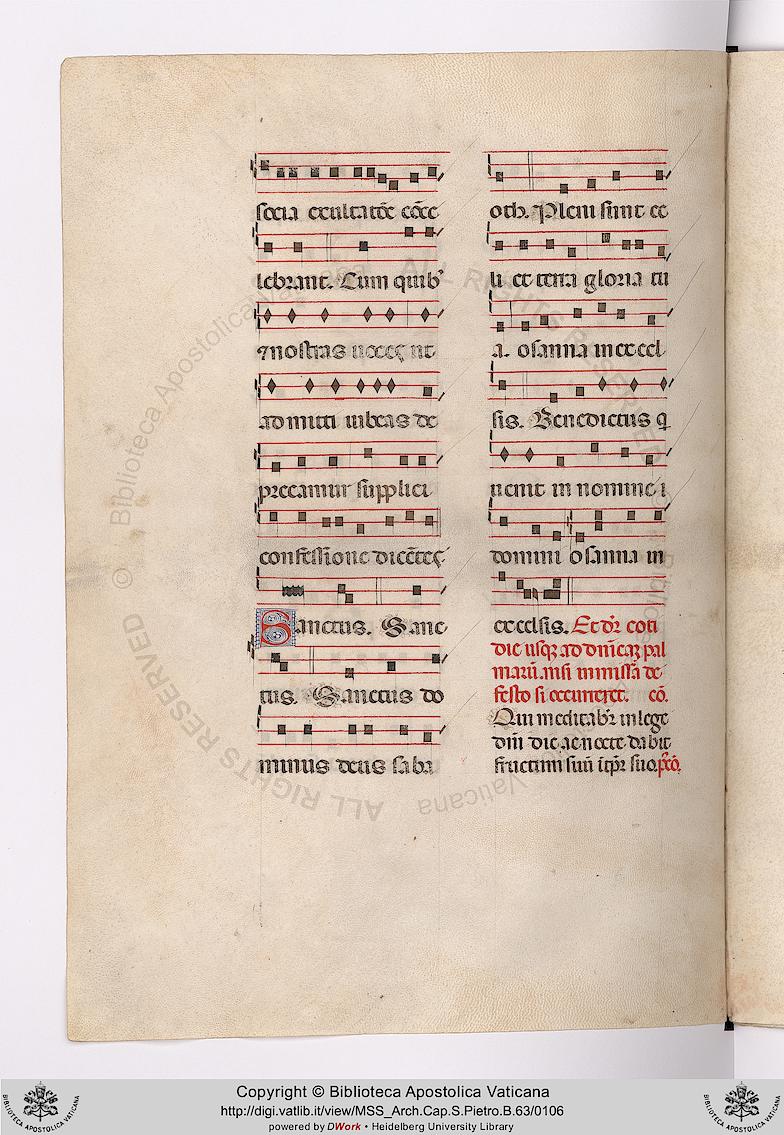 socia exultatõe cõce
lebrant. Cum quibꝰ
⁊ nostras uoces ut
admitti iubeas de
precamur supplici
confessione dicẽtes.
Sanctus. Sanc
tus. Sanctus do
minus deus saba
oth. Pleni sunt ce
li et terra gloria tu
a. osanna in excel
sis. Benedictus q̃
uenit in nomine
domini osanna in
excelsis. Et dr̃ coti
die usq̨ ad dñicaȝ pal
marũ. nisi in missa de
festo si occurreret. cõ.
Qui meditabr̃ in lege
dñi die ac nocte dabit
fructum suũ ĩ tp̃r suo. pꝯ̃cõ.
ALL RIGHTS RESERVED © Biblioteca Apostolica Vaticana
Copyright © Biblioteca Apostolica Vaticana
http://digi.vatlib.it/view/MSS_Arch.Cap.S.Pietro.B.63/0106
powered by DWork • Heidelberg University Library
BIBLIOTECA APOSTOLICA VATICANA
BIBLIOTECA APOSTOLICA VATICANA